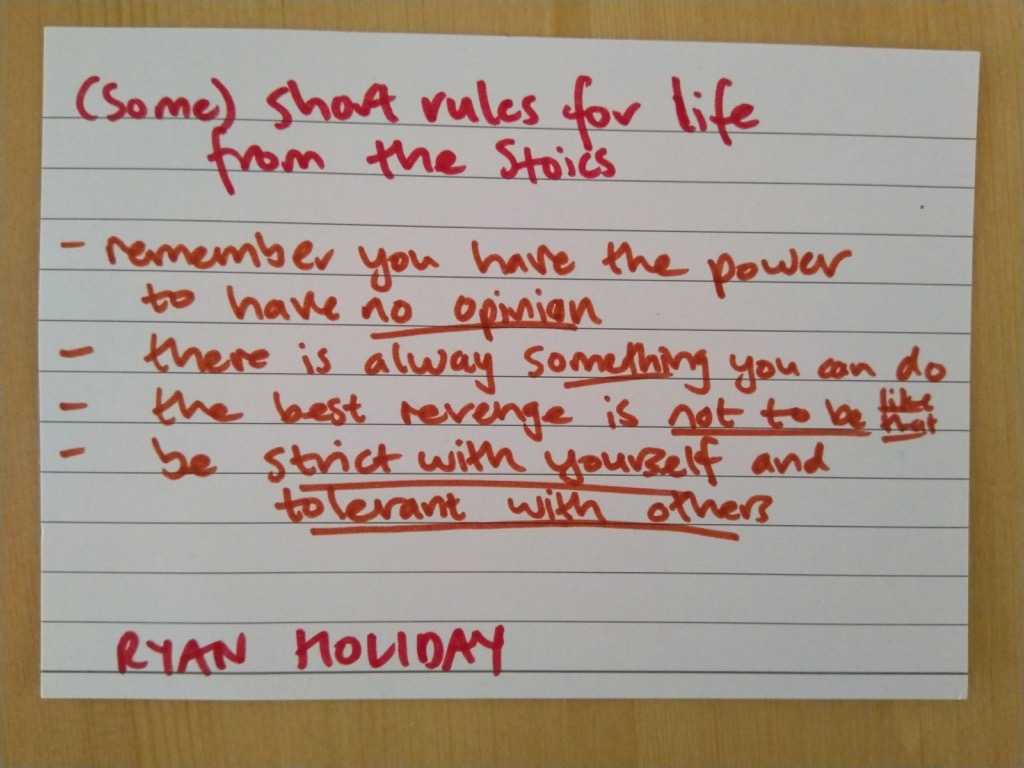 (Some) short rules for life
from the Stoics
- remember you have the power
to have no opinion
- there is alway something you can do
- the best revenge is not to be like that
- be strict with yourself and
tolerant with others
RYAN HOLIDAY